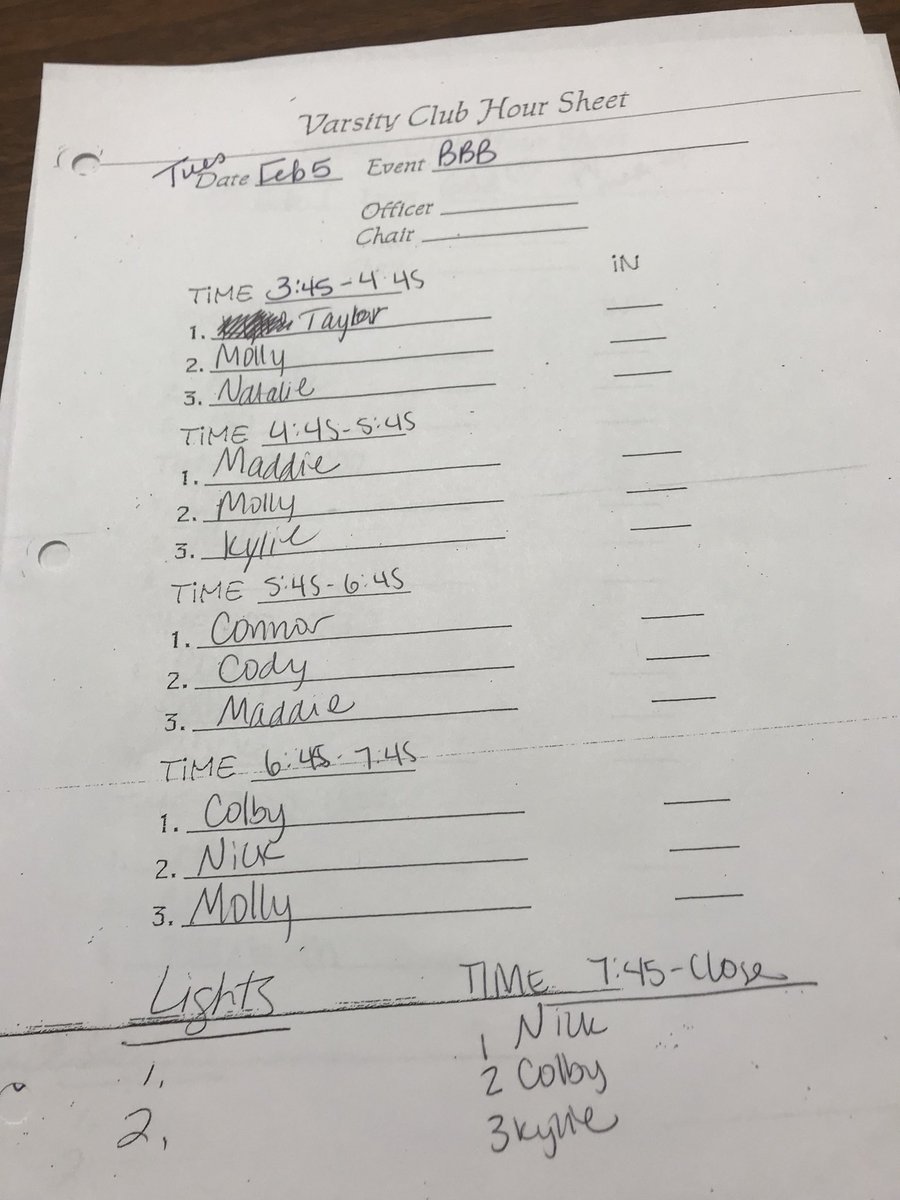 Varsity Club Hour Sheet
Tues
Date Feb 5 Event BBB
Officer
Chair
TiME 3:45-4:45 iN
1. Taylor
2. Molly
3. Natalie
TiME 4:45-5:45
1. Maddie
2. Molly
3. Kylie
TiME 5:45-6:45
1. Connor
2. Cody
3. Maddie
TiME 6:45-7:45
1. Colby
2. Nick
3. Molly
Lights
1.
2.
TIME 7:45-Close
1 Nick
2 Colby
3 Kylie